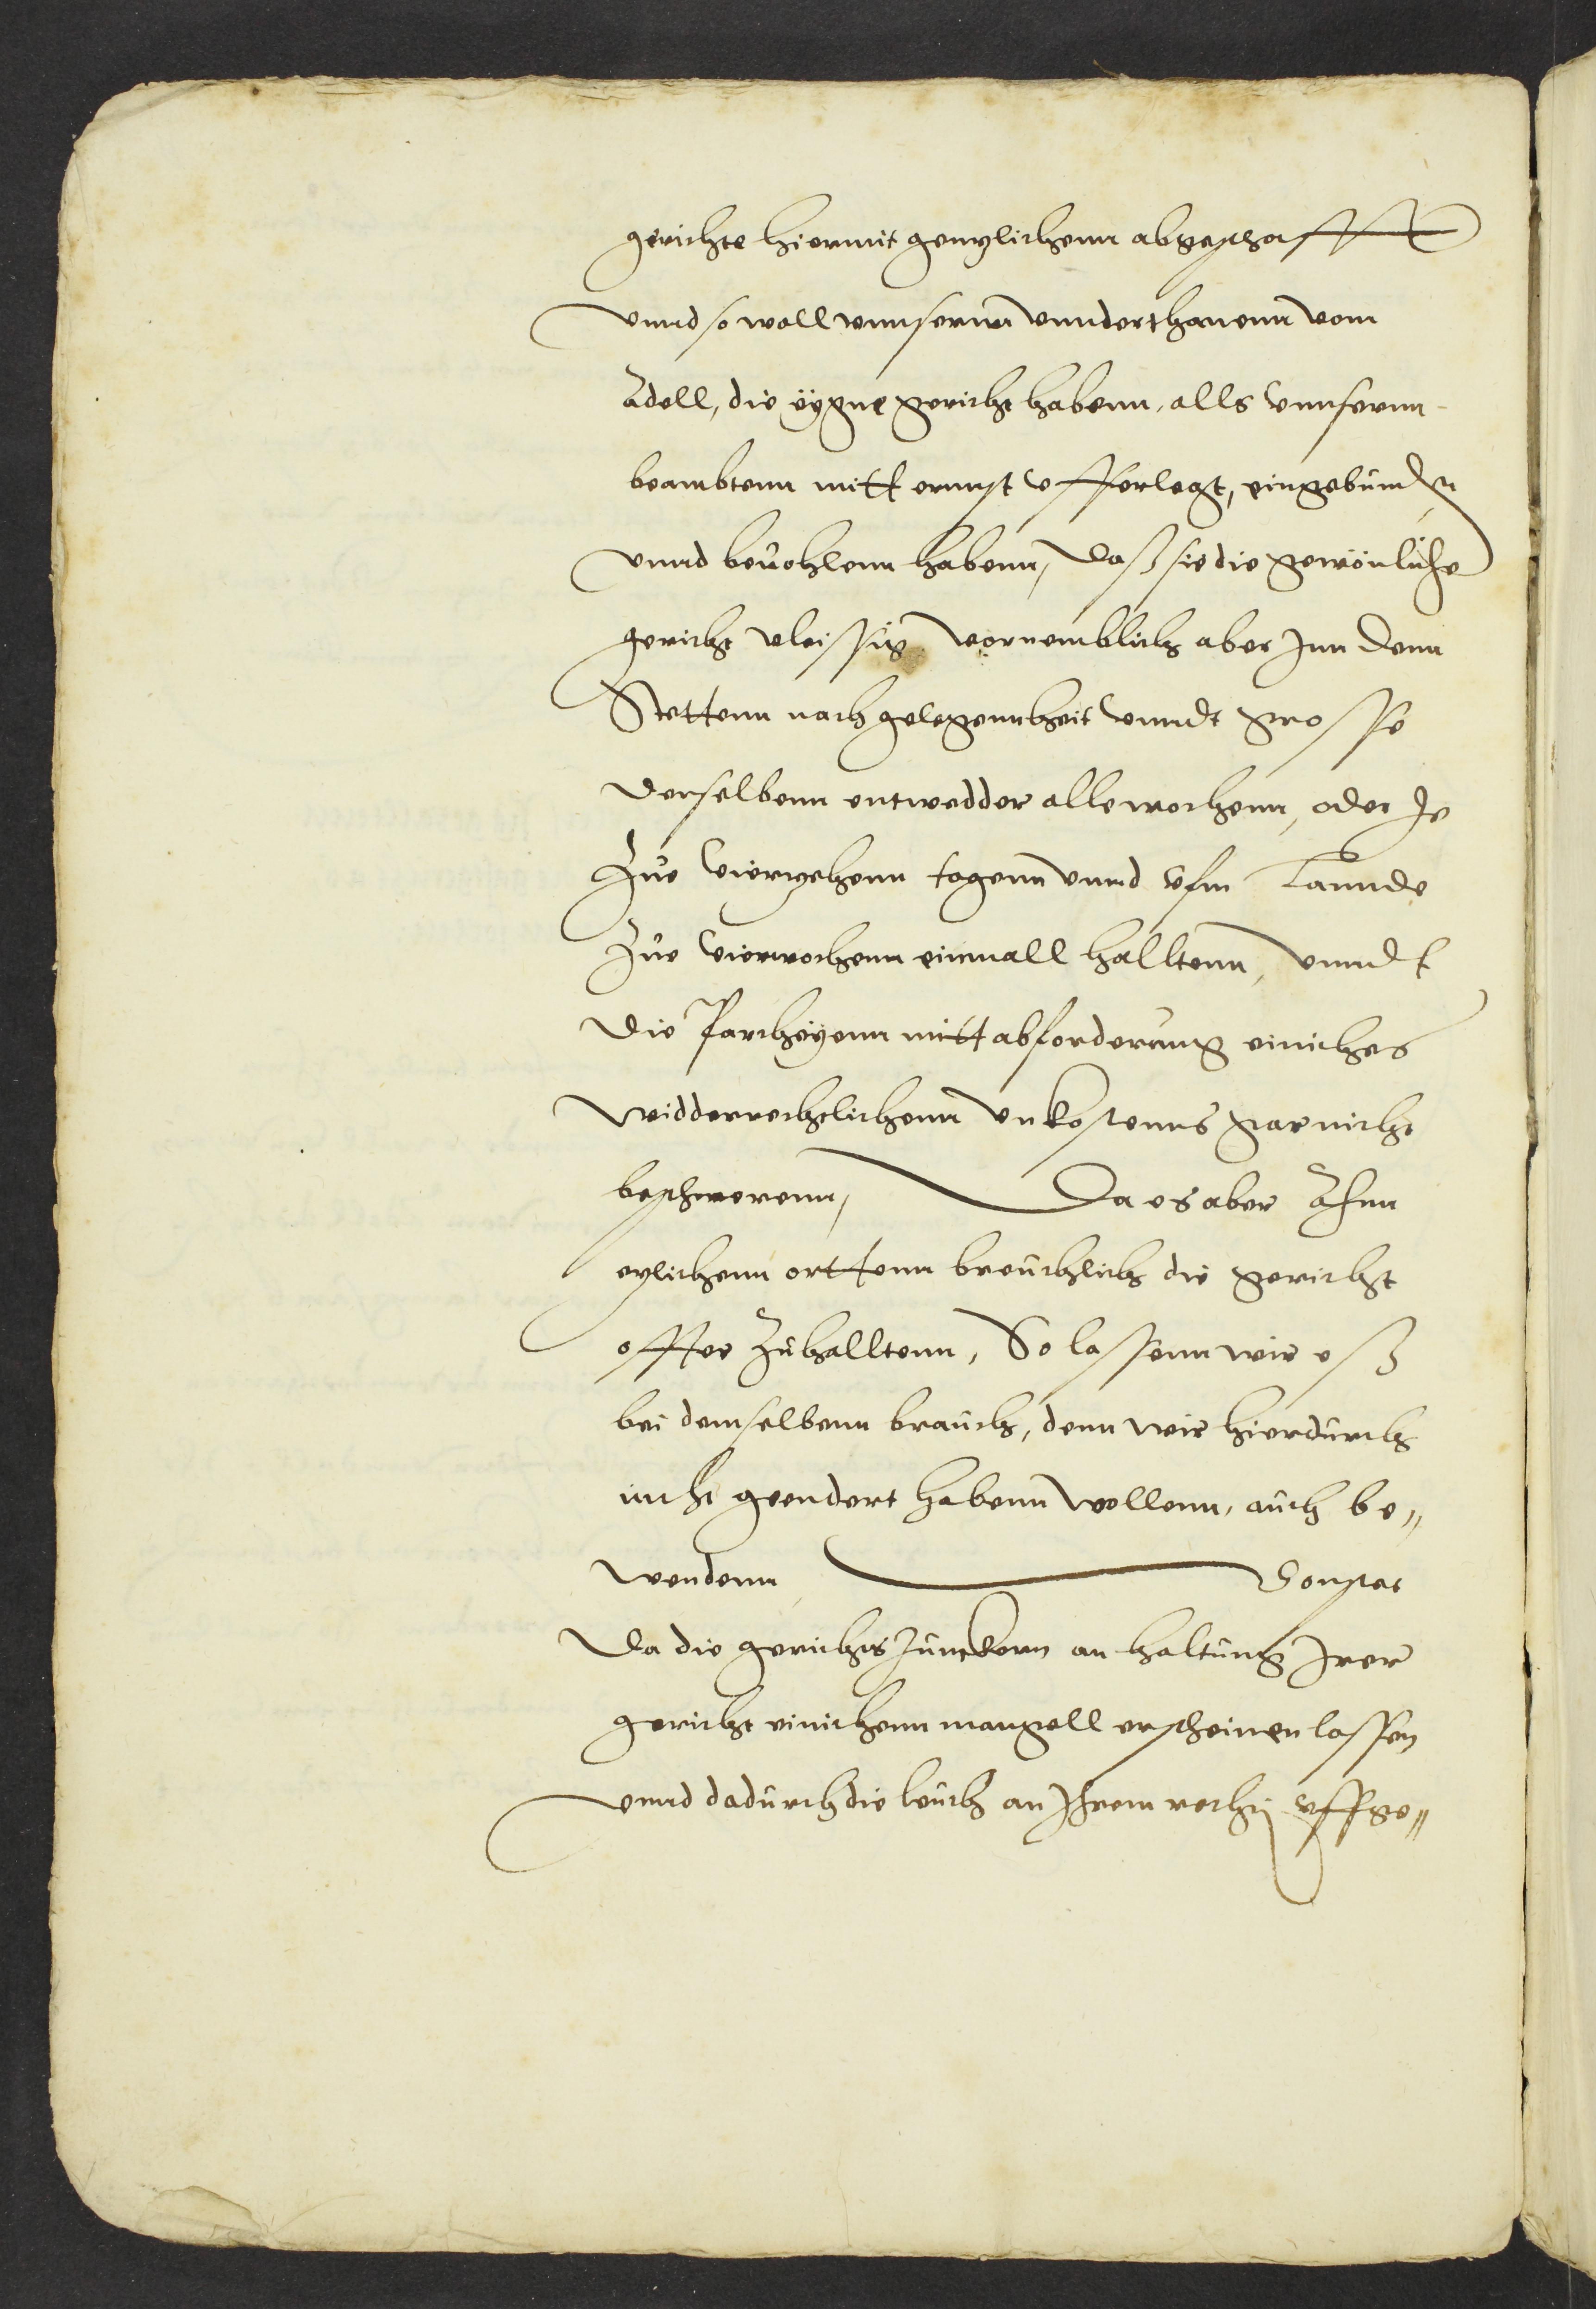 gerichte hiermit genzlichenn abgeschafftt
vnnd so woll vnnsernn vnnderthanenn vom
Adell, die eygne gericht habenn, alls vnnsernn
beambtenn mitt ernnst vfferlegt, eingebunden
vnnd beuohlenn habenn, daß sie die gewönliche
gericht vleissig vornemblich aber jnn denn
Stettenn nach gelegennheit vnndt grosse
derselbenn entwedder alle wochenn, oder Je
Zue vierzehenn tagenn vnnd vfm Lannde
Zue vier wochenn einmall halltenn, vnndt
die Partheyenn mitt abforderung einiches
widderrechtlichenn vnkostenns gar nicht
beschwerenn, Da es aber Ahnn
ezlichenn orttenn breuchlich die gericht
offter Zuhalltenn, So lassenn wir eß
bei demselbenn brauch, denn wir hierdurch
nicht geendert habenn wollenn, auch be„
wendenn, Sonster
Da die gerichts Junckern an haltung Jrer
gericht einichenn mangell erscheinen lassen
vnnd dadurch die leuth an Jhrem recht vffge„